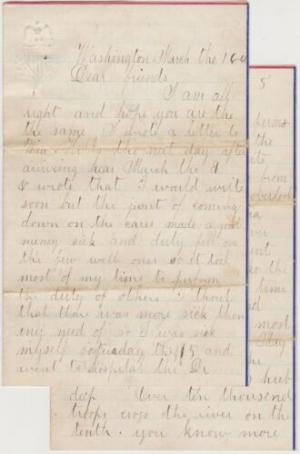 Washington March the 16
Dear friends
I am all
right and hope you are the
the same I wrote a letter to
the next day after
arriving hear March the 9
& wrote that I would write
soon but the of coming
down on the cares made a good
meney sick and duty fell on
the few well ones so it took
most of my time to perform
the duty of others I think
that there was more sick then
eny need of so I was sick
myself the 15 and
went to hospital the Dr
5
the
from
a
over
the
time
and
most
day
the
deep Over ten thousand
troops cross the river on the
tenth. you know more